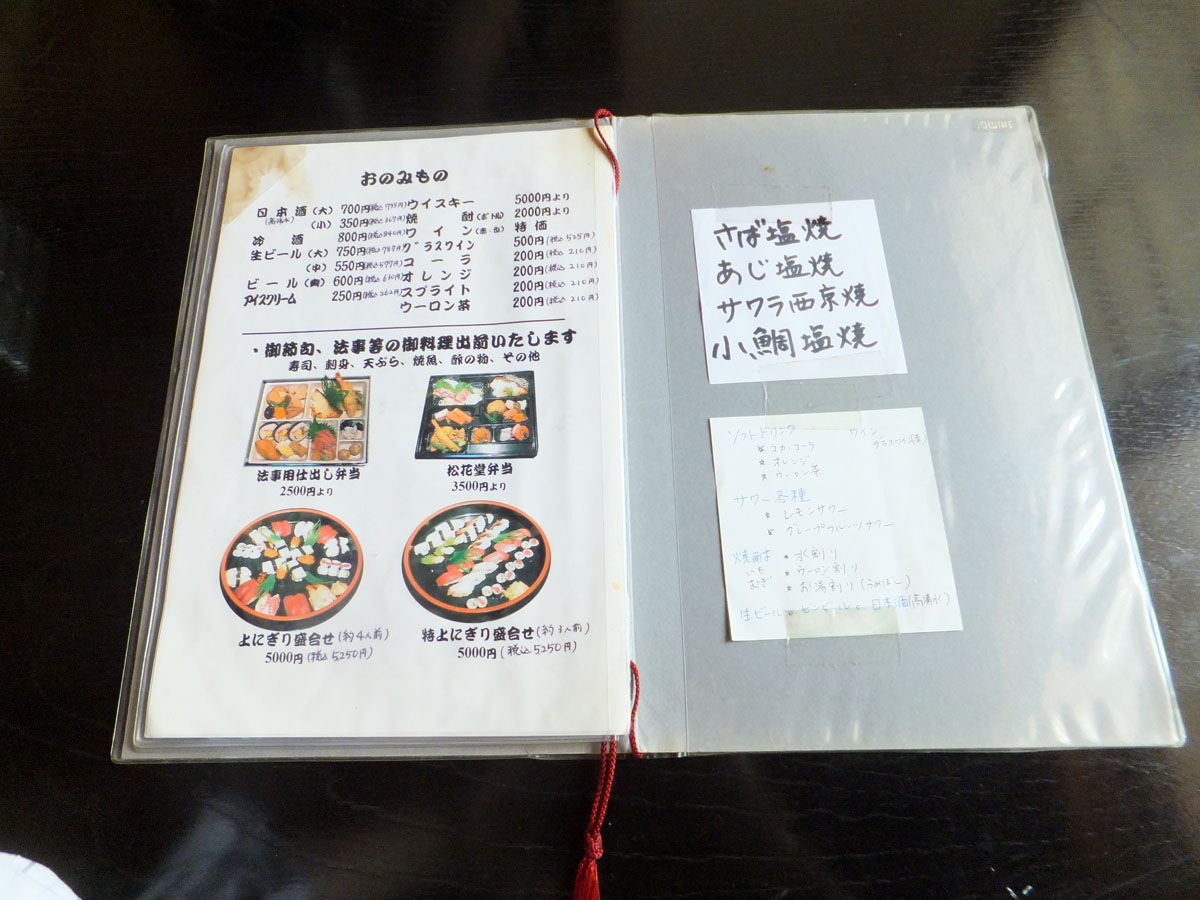 おのみもの
日本酒(大) 700円(税込735円)
(高清水)
(小) 350円(税込367円)
冷酒 800円(税込840円)
生ビール(大) 750円(税込787円)
(中) 550円(税込577円)
ビール 600円(税込630円)
アイスクリーム 250円(税込262円)
ウイスキー 5000円より
焼酎(ボトル) 2000円より
ワイン(赤・白) 特価
グラスワイン 500円(税込525円)
コーラ 200円(税込210円)
オレンジ 200円(税込210円)
スプライト 200円(税込210円)
ウーロン茶 200円(税込210円)
・御節句、法事等の御料理出前いたします
寿司、刺身、天ぷら、焼魚、酢の物、その他
法事用仕出し弁当
2500円より
松花堂弁当
3500円より
上にぎり盛合せ(約4人前)
5000円(税込5250円)
特上にぎり盛合せ(約3人前)
5000円(税込5250円)
さば塩焼
あじ塩焼
サワラ西京焼
小鯛塩焼
ソフトドリンク
* コカ・コーラ
* オレンジ
* ウーロン茶
ワイン
グラスワイン
サワー各種
* レモンサワー
* グレープフルーツサワー
焼酎
いも
むぎ
* 水割り
* ウーロン割り
* お湯割り(うめぼし)
生ビール
日本酒(高清水)